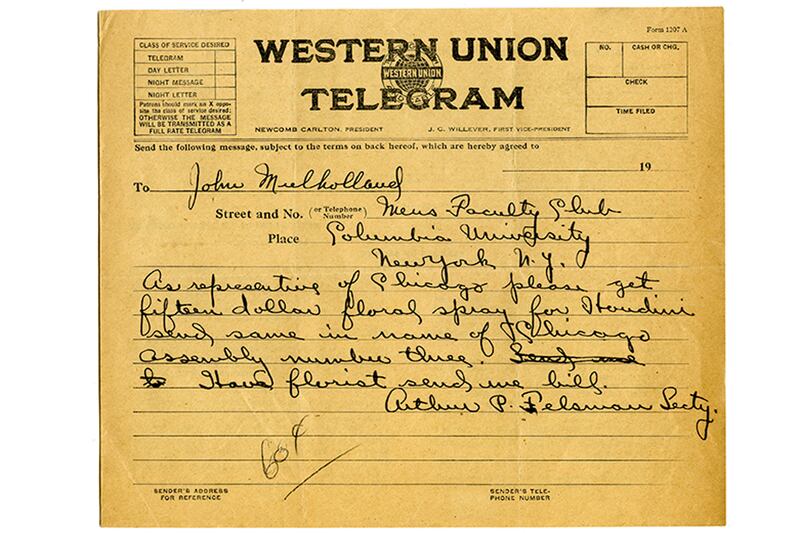 Form 1207 A
CLASS OF SERVICE DESIRED
TELEGRAM
DAY LETTER
NIGHT MESSAGE
NIGHT LETTER
Patrons should mark an X oppo-
site the class of service desired;
OTHERWISE THE MESSAGE
WILL BE TRANSMITTED AS A
FULL RATE TELEGRAM
WESTERN UNION
WESTERN UNION
TELEGRAM
NEWCOMB CARLTON, PRESIDENT
J. C. WILLEVER, FIRST VICE-PRESIDENT
NO.
CASH OR CHG.
CHECK
TIME FILED
Send the following message, subject to the terms on back hereof, which are hereby agreed to
19
To John Mulholland
Street and No. (or Telephone Number) Mens Faculty Club
Place Columbia University
New York N.Y.
As representive of Chicago please get
fifteen dollar floral spray for Houdini
send same in name of Chicago
Assembly number three. Send me
to Have florist send me bill.
Arthur P. Felsman Secty.
60¢
SENDER'S ADDRESS
FOR REFERENCE
SENDER'S TELE-
PHONE NUMBER